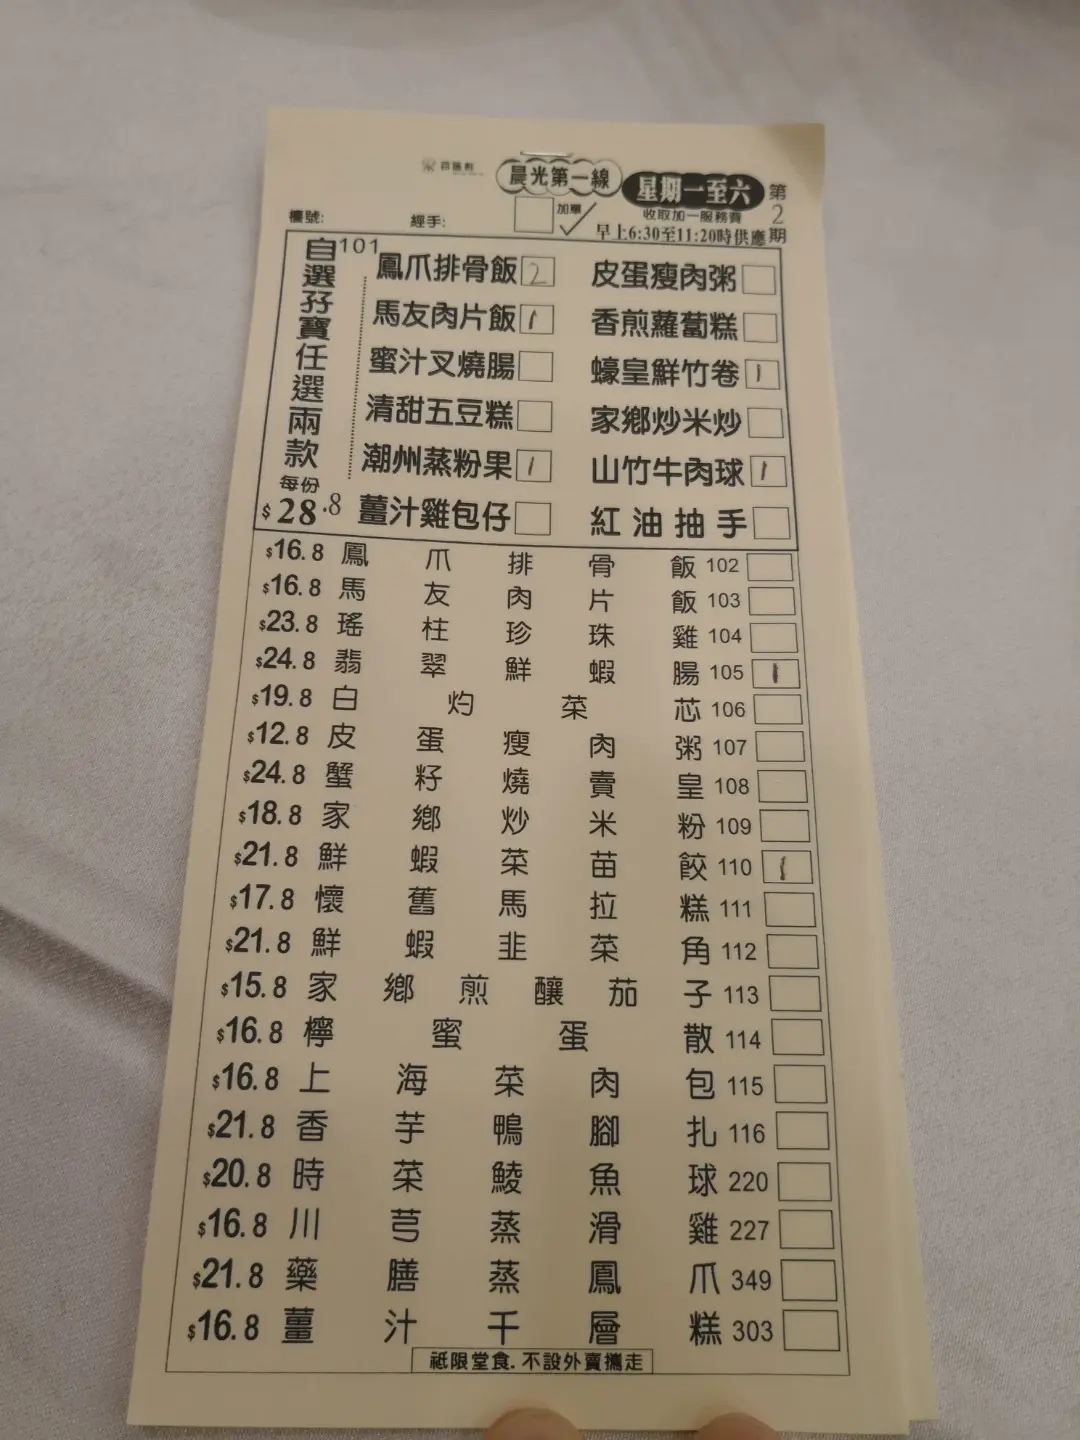 晨光第一線 星期一至六 第2期
加單 收取加一服務費
檯號: 經手: 早上6:30至11:20時供應
自選孖寶任選兩款 101
每份
$28.8
鳳爪排骨飯 2 皮蛋瘦肉粥
馬友肉片飯 1 香煎蘿蔔糕
蜜汁叉燒腸 蠔皇鮮竹卷 1
清甜五豆糕 家鄉炒米炒
潮州蒸粉果 1 山竹牛肉球 1
薑汁雞包仔 紅油抽手
$16.8 鳳爪排骨飯 102
$16.8 馬友肉片飯 103
$23.8 瑤柱珍珠雞 104
$24.8 翡翠鮮蝦腸 105 1
$19.8 白灼菜芯 106
$12.8 皮蛋瘦肉粥 107
$24.8 蟹籽燒賣皇 108
$18.8 家鄉炒米粉 109
$21.8 鮮蝦菜苗餃 110 1
$17.8 懷舊馬拉糕 111
$21.8 鮮蝦韭菜角 112
$15.8 家鄉煎釀茄子 113
$16.8 檸蜜蛋散 114
$16.8 上海菜肉包 115
$21.8 香芋鴨腳扎 116
$20.8 時菜鯪魚球 220
$16.8 川芎蒸滑雞 227
$21.8 藥膳蒸鳳爪 349
$16.8 薑汁千層糕 303
祗限堂食.不設外賣攜走